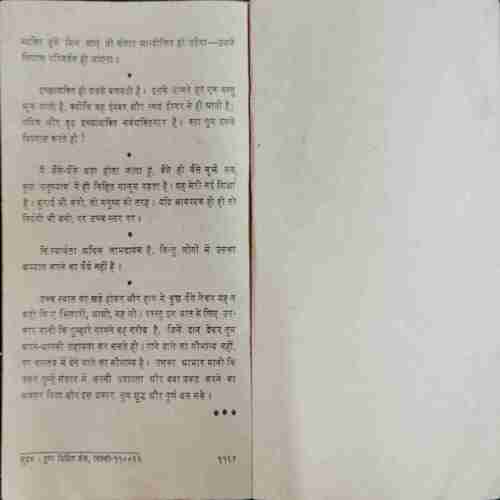 व्यक्ति हुये बिना सारा जो संसार आन्दोलित हो उठेगा—उसमें
विराट परिवर्तन हो जायेगा ।
•
इच्छाशक्ति ही सबसे बलवती है । इसके सामने हर एक वस्तु
झुक जाती है, क्योंकि वह ईश्वर और स्वयं ईश्वर से ही आती है;
पवित्र और दृढ़ इच्छाशक्ति सर्वशक्तिमान है । क्या तुम इसमें
विश्वास करते हो ?
•
मैं जैसे-जैसे बड़ा होता जाता हूं, वैसे ही वैसे मुझे सब
कुछ 'मनुष्यत्व' में ही निहित मालूम पड़ता है । यह मेरी नई शिक्षा
है । बुराई भी करो, तो मनुष्य की तरह । यदि आवश्यक ही हो तो
निर्दयी भी बनो, पर उच्च स्तर पर ।
•
निःस्वार्थता अधिक लाभदायक है, किन्तु लोगों में उसका
अभ्यास करने का धैर्य नहीं है ।
•
उच्च स्थान पर खड़े होकर और हाथ में कुछ पैसे लेकर यह न
कहो कि ए भिखारी, आओ, यह लो । परन्तु इस बात के लिए उप-
कार मानो कि तुम्हारे सामने वह गरीब है, जिसे दान देकर तुम
अपने-आपकी सहायता कर सकते हो । पाने वाले का सौभाग्य नहीं,
पर वास्तव में देने वाले का सौभाग्य है । उसका आभार मानो कि
उसने तुम्हें संसार में अपनी उदारता और दया प्रकट करने का
अवसर दिया और इस प्रकार, तुम शुद्ध और पूर्ण बन सके ।
•••
मुद्रक : पुष्प प्रिंटिंग प्रेस, दिल्ली-११००३२
११९२